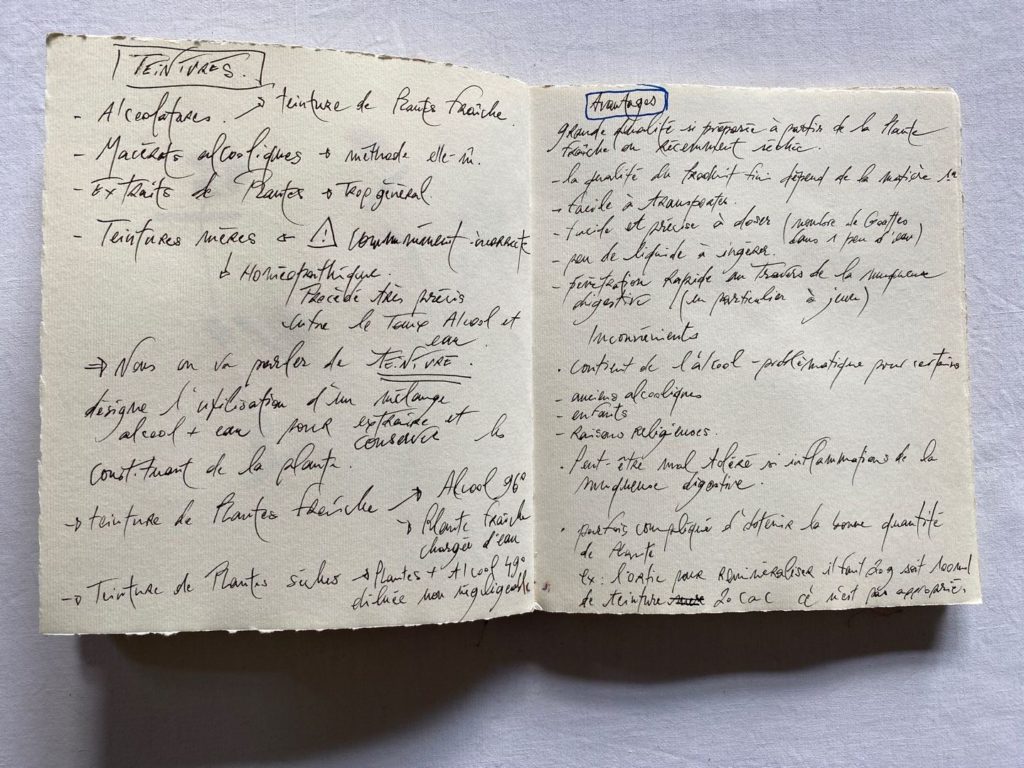 TEINTURES.
- Alcoolatures. → teinture de Plante fraîche.
- Macérats alcooliques → méthode elle-m.
- Extraits de Plantes → Trop général.
- Teintures mères ← ⚠ communément incorrecte
↳ Homéopathique.
Procédé très précis
entre le Taux Alcool et
eau.
⇒ Nous on va parler de TEINTURE.
désigne l'utilisation d'un mélange
alcool + eau pour extraire et
conserve les
constituant de la plante.
→ teinture de Plantes fraîche → Alcool 96°
→ Plante fraîche
chargée d'eau
→ Teinture de Plantes sèches → Plantes + Alcool 49°
diluée non négligeable
Avantages
grande qualité si préparée à partir de la Plante
fraîche ou récemment séchée.
- la qualité du produit fini dépend de la matière 1ère
- facile à transporter.
- facile et précise à doser (nombre de Gouttes
dans 1 peu d'eau)
- peu de liquide à ingérer.
- pénétration rapide au travers de la muqueuse
digestive (en particulier à jeun)
Inconvénients
• contient de l'alcool - problématique pour certains
- anciens alcooliques
- enfants
- Raisons religieuses.
• Peut-être mal toléré si inflammations de la
muqueuse digestive.
• parfois compliquée d'obtenir la bonne quantité
de Plante
ex: l'ortie pour reminéraliser il faut 20g soit 100ml
de teinture 20 cac ce n'est pas approprié.